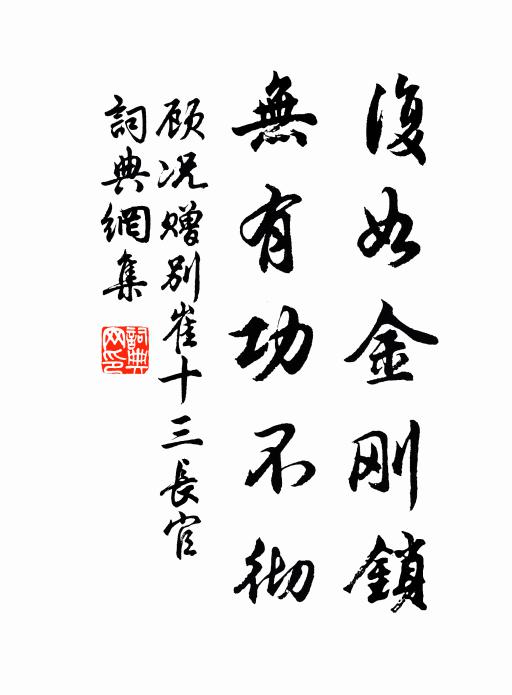 復如金刚鎖
無有功不彻
顾况赠别崔十三長官
詞典網集
詞典网印